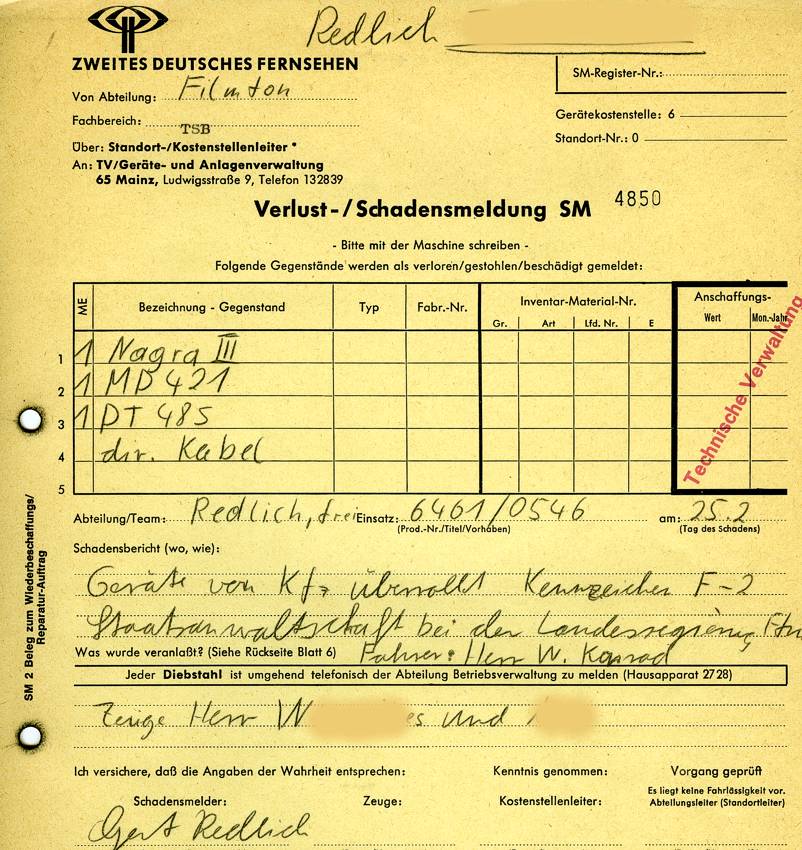 Redlich
ZWEITES DEUTSCHES FERNSEHEN
Von Abteilung: Filmton
Fachbereich: TSB
Über: Standort-/Kostenstellenleiter *
An: TV/Geräte- und Anlagenverwaltung
65 Mainz, Ludwigsstraße 9, Telefon 132839
SM-Register-Nr.:
Gerätekostenstelle: 6
Standort-Nr.: 0
Verlust-/Schadensmeldung SM 4850
- Bitte mit der Maschine schreiben -
Folgende Gegenstände werden als verloren/gestohlen/beschädigt gemeldet:
ME Bezeichnung - Gegenstand Typ Fabr.-Nr. Inventar-Material-Nr. Anschaffungs-
Gr. Art Lfd. Nr. E Wert Mon.-Jahr
1 1 Nagra III
2 1 MD 421
3 1 DT 485
4 div. Kabel
5
Technische Verwaltung
Abteilung/Team: Redlich, frei Einsatz: 6461/0546 am: 25.2
(Prod.-Nr./Titel/Vorhaben) (Tag des Schadens)
Schadensbericht (wo, wie):
Geräte von Kfz überrollt Kennzeichen F-2
Staatsanwaltschaft bei der Landesregierung
Was wurde veranlaßt? (Siehe Rückseite Blatt 6) Fahrer: Herr W. Konrad
Jeder Diebstahl ist umgehend telefonisch der Abteilung Betriebsverwaltung zu melden (Hausapparat 2728)
Zeuge Herr W es und
Ich versichere, daß die Angaben der Wahrheit entsprechen: Kenntnis genommen: Vorgang geprüft
Es liegt keine Fahrlässigkeit vor.
Schadensmelder: Zeuge: Kostenstellenleiter: Abteilungsleiter (Standortleiter)
Gert Redlich
SM 2 Beleg zum Wiederbeschaffungs/
Reparatur-Auftrag